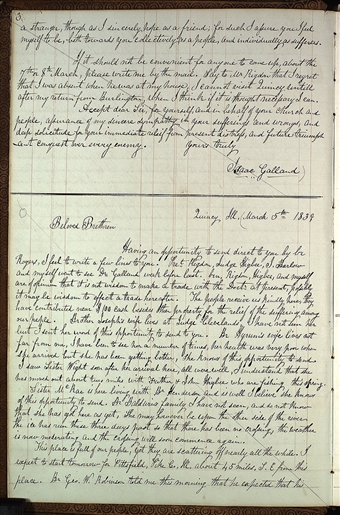 3.
a stranger, though as I sincerely hope as a friend; for such I assure you I feel
myself to be, both towards you collectively, as a people, and individually as sufferers.
If it should not be convenient for any one to come up, about the
7th or 8th March, please write me by the mail. Say to Mr. Rigdon that I regret
that I was absent when he was at my house; I cannot visit Quincy until
after my return from Burlington, when I think if it is thought necessary, I can.
Accept dear Sir, for yourself, and in behalf of your Church and
people, assurance of my sincere sympathy in your sufferings and wrongs, and
deep solicitude for your immediate relief from present distress, and future triumphant
conquest over every enemy. Yours truly
Isaac Galland
Quincy, Ill. March 5th 1839
Beloved Brethren
Having an opportunity to send direct to you by br
Rogers, I feel to write a few lines to you. Prest. Rigdon, Judge Higbee, I. Morley
and myself went to see Dr Galland week before last. Bren, Rigdon, Higbee, and myself
are of opinion that it is not wisdom to make a trade with the Doctr at present, possibly
it may be wisdom to effect a trade hereafter. The people receive us kindly here, they
have contributed near $100 cash besides other property for the relief of the suffering among
our people. Brother Joseph's wife lives at Judge Cleveland's, I have not seen her
but I sent her word of this opportunity to send to you. Br. Hyrum's wife lives not
far from me, I have been to see her a number of times, her health was very poor when
she arrived but she has been getting better, she knows of this opportunity to send.
I saw Sister Wight soon after her arrival here, all were well, I understand that she
has moved out about two miles with Father & John Higbee who are fishing this spring.
Sister McRae is here living with Br Henderson and is well I believe she knows
of this opportunity to send. Br Baldwin's family I have not seen, and do not know
that she has got here as yet, she may however be upon the other side of the river,
the ice has run these three days past so that there has been no crossing, the weather
is now moderating and the crossing will soon commence again.
This place is full of our people, yet they are scattering off nearly all the while. I
expect to start tomorrow for Pittsfield, Pike Co, Ill. about 45 miles, S. E. from this
place. Br Geo. W. Robinson told me this morning that he expected that his